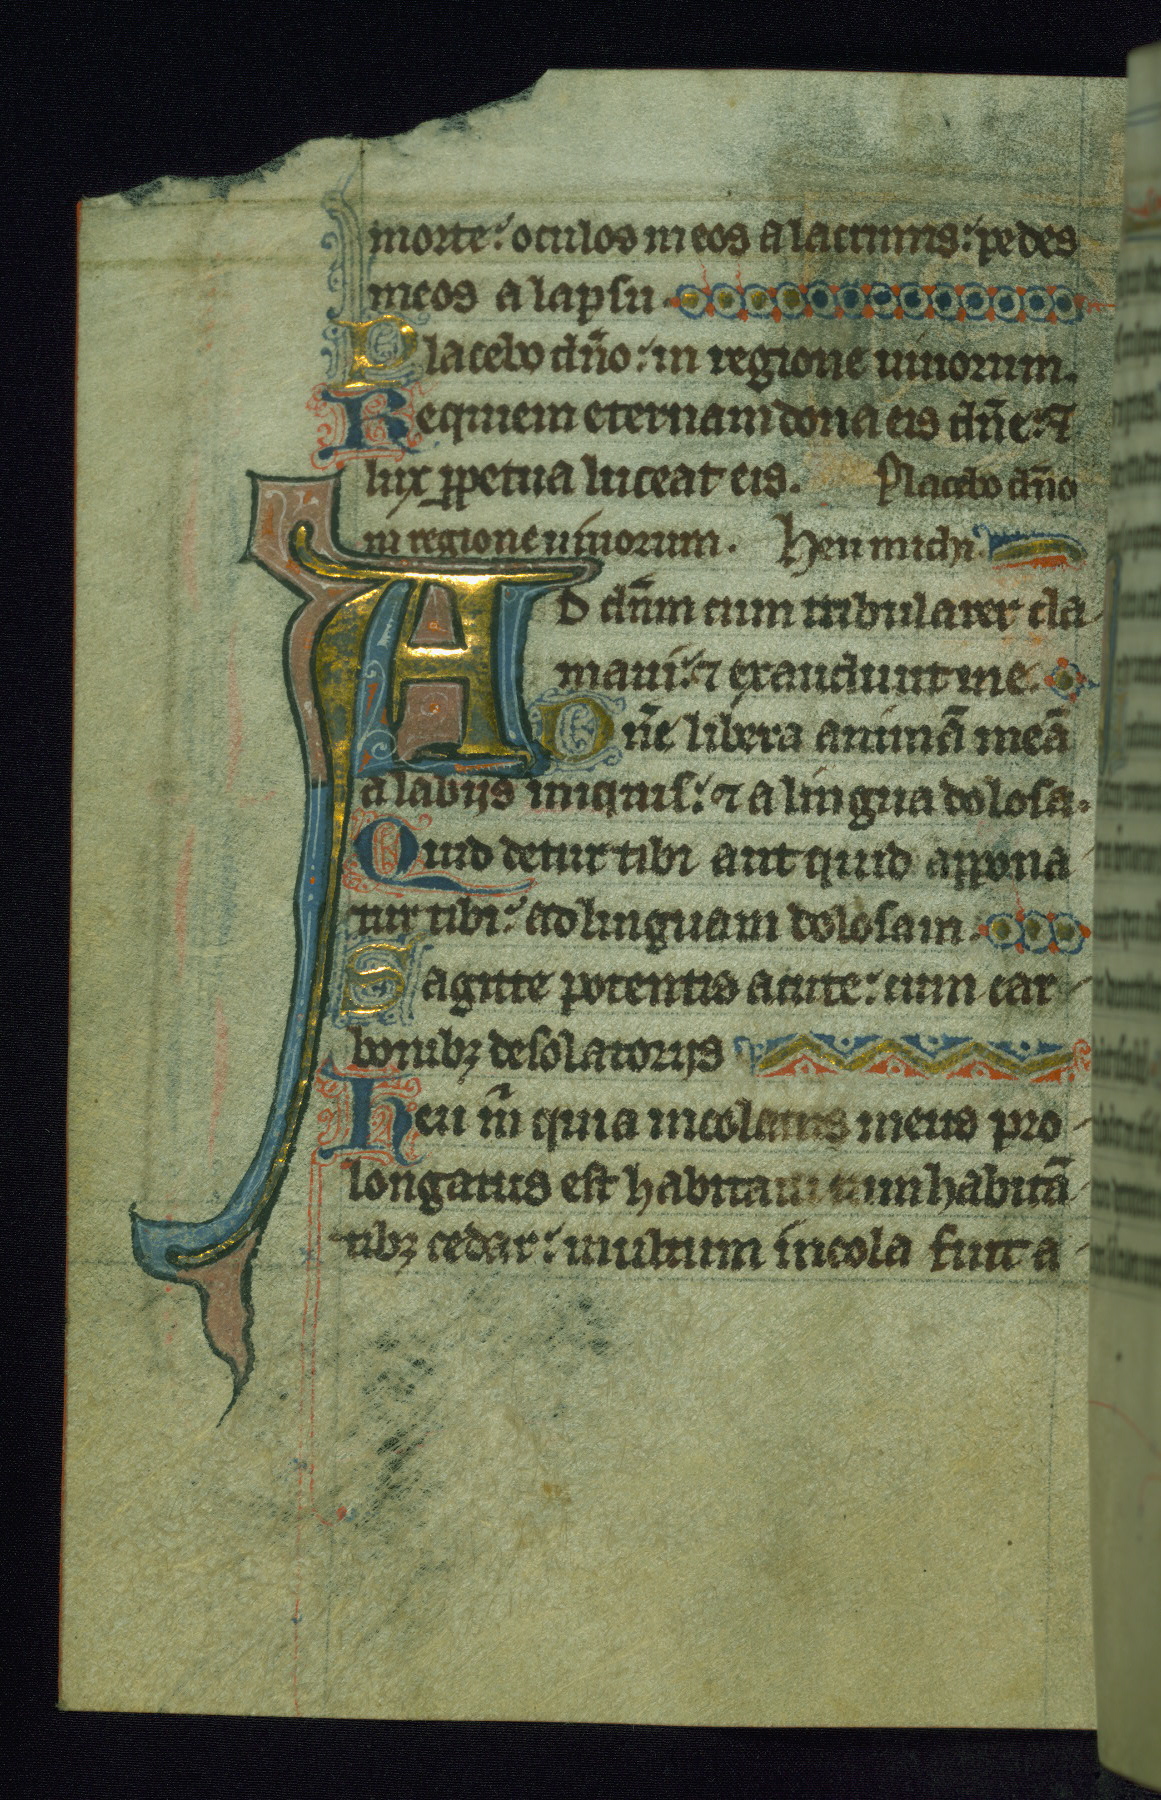 morte: oculos meos a lacrimis: pedes
meos a lapsu.
Placebo dn̄o: in regione uiuorum.
Requiem eternam dona eis dn̄e: ⁊
lux ꝑpetua luceat eis. Placebo dn̄o
in regione uiuorum. Heu michi
AD dn̄m cum tribularer cla
maui: ⁊ exaudiuit me.
Dn̄e libera animā meā
a labijs iniquis: ⁊ a lingua dolosa.
Quid detur tibi aut quid appona
tur tibi: ad linguam dolosam.
Sagitte potentis acute: cum car
bonibꝫ desolatorijs
Heu m̄ quia incolatus meus pro
longatus est habitaui cum habitā
tibꝫ cedar: multum incola fuit a